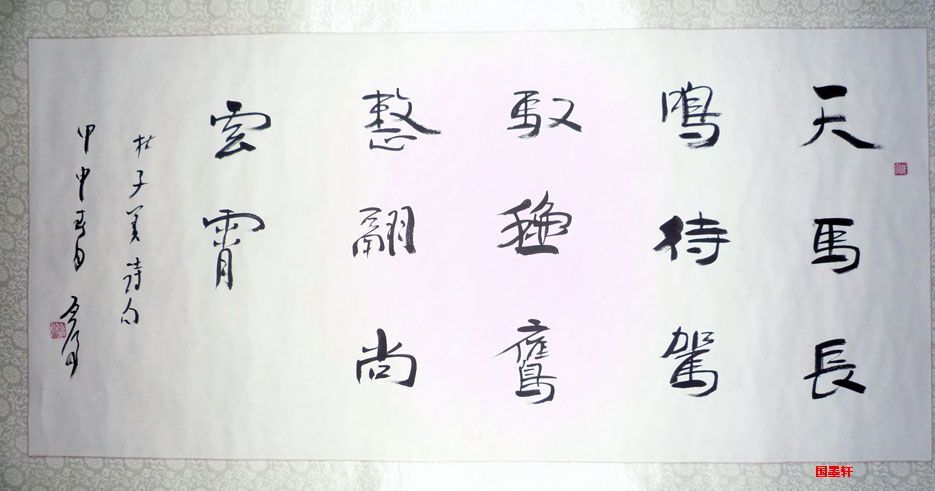 天馬長
鳴待駕
馭穐鷹
整翮尚
雲霄
杜子美詩句
甲申春月
国墨轩